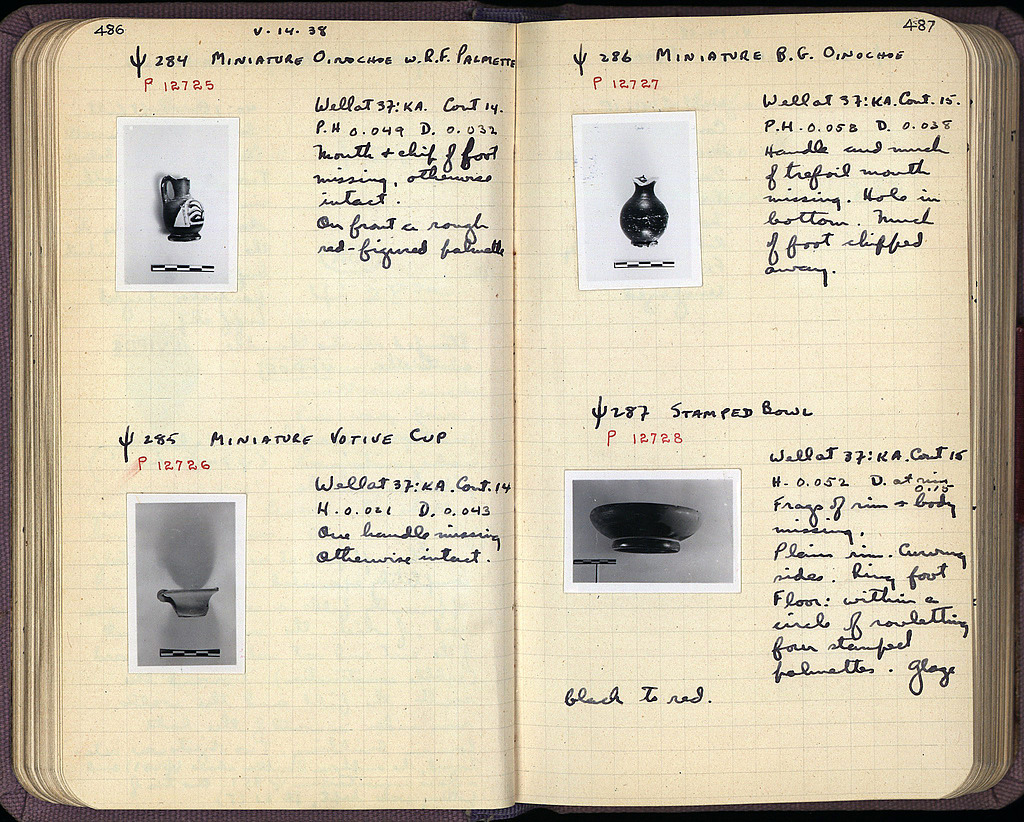 486
V.14.38
Ψ 284 MINIATURE OINOCHOE W. R.F. PALMETTE
P 12725
Well at 37:KA. Cont 14.
P.H 0.049 D. 0.032
Mouth + chip of foot
missing, otherwise
intact.
On front a rough
red-figured palmette
Ψ 285 MINIATURE VOTIVE CUP
P 12726
Well at 37:KA. Cont. 14
H. 0.021 D. 0.043
One handle missing
Otherwise intact.
487
Ψ 286 MINIATURE B.G. OINOCHOE
P 12727
Well at 37:KA. Cont. 15.
P.H. 0.058 D. 0.038
Handle and much
of trefoil mouth
missing. Hole in
bottom. Much
of foot chipped
away.
Ψ 287 STAMPED BOWL
P 12728
Well at 37:KA. Cont 15
H. 0.052 D. at rim
0.15
Frags of rim + body
missing.
Plain rim. Curving
sides. Ring foot
Floor: within a
circle of rouletting
four stamped
palmettes. Glaze
black to red.